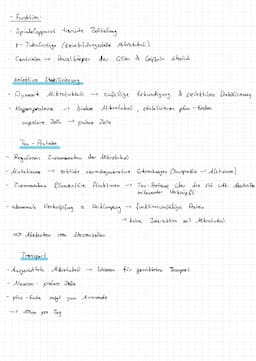 - Funktion:
- Spindelapparat tierische Zellteilung
γ-Tubulinringe (keimbildungsstelle Mikrotubuli)
- Centriolen → Basalkörper der Cilien & Geißeln ähnlich
Selektive Stabilisierung
- Dynami Mikrotubuli → zufällige Erkundigung & selektiven Stabilisierung
- Kappenproteine → binden Mikrotubuli, stabilisieren plus-Enden
unpolare Zelle → polare Zelle
Tau-Proteine
- Regulieren Zusammenbau der Mikrotubuli
- Mutationen → erblich neurodegenerative Erkrankungen (Alzheimer)
- Zusammenbau Filamente → Tau-Proteine über die sich
miteinander verknüpft
- abnormale Verknüpfung & Verklumpung → funktionsunfähige Fasern
→ keine Interaktion mit Mikrotubuli
=> Absterben von Nervenzellen
Transport
- Ausgerichtete Mikrotubuli → Schienen für gerichteten Transport
- Neuron - polare Zelle
- plus-Ende zeigt zum Axonende
→ pro Tag